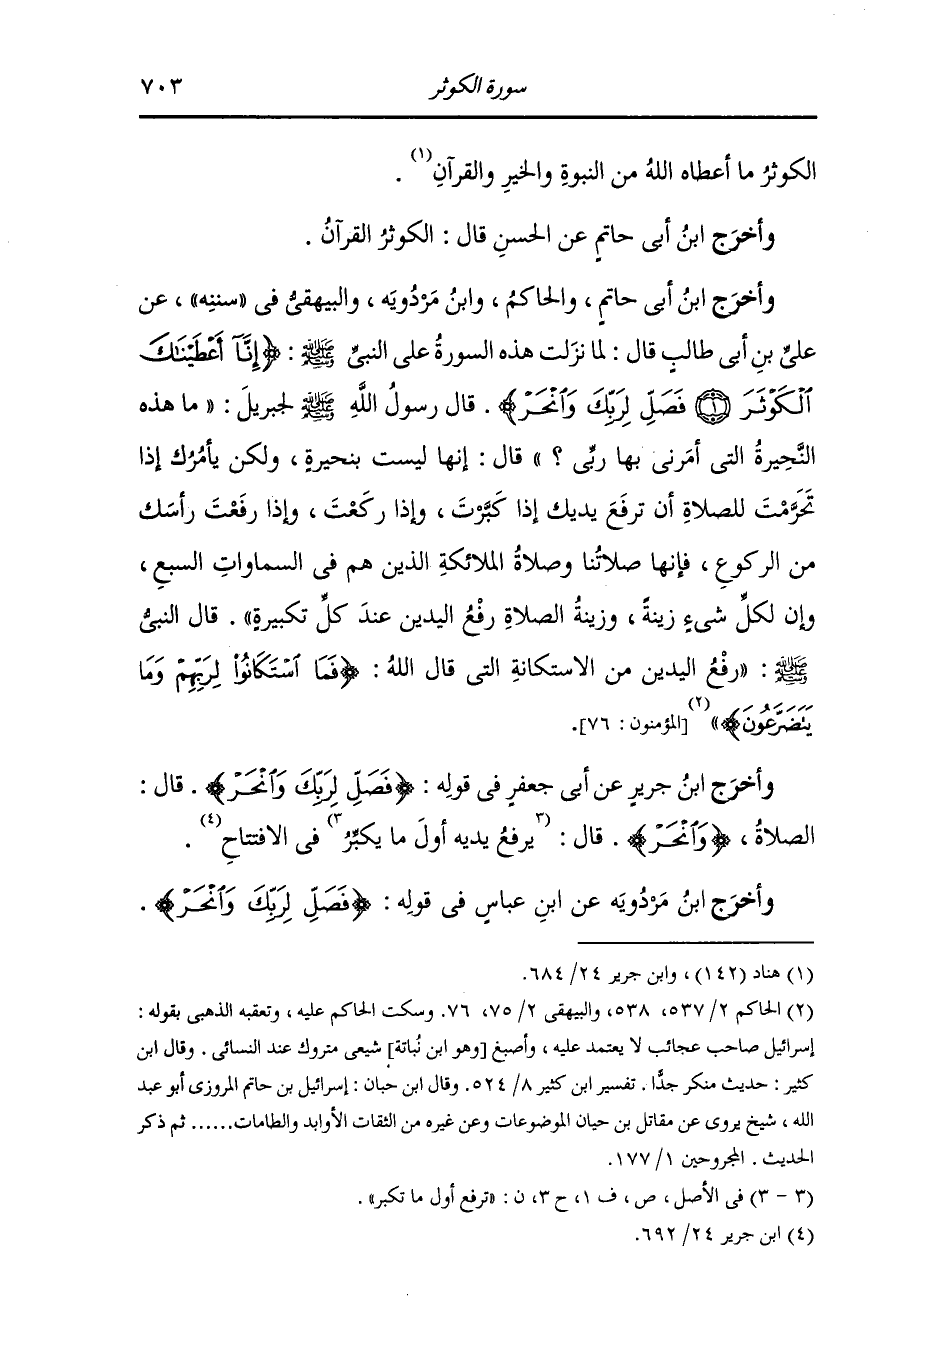 سورة الكوثر ٧٠٣
الكوثرُ ما أعطاه اللهُ من النبوةِ والخيرِ والقرآنِ(١) .
وأخرَج ابنُ أبى حاتمٍ عن الحسنِ قال : الكوثرُ القرآنُ .
وأخرَج ابنُ أبى حاتمٍ ، والحاكمُ ، وابنُ مَرْدُويَه ، والبيهقىُّ فى «سننِه» ، عن
علىِّ بنِ أبى طالبٍ قال : لما نزَلت هذه السورةُ على النبىِّ ﷺ : ﴿إِنَّآ أَعْطَيْنَٰكَ
ٱلْكَوْثَرَ ۝١ فَصَلِّ لِرَبِّكَ وَٱنْحَرْ﴾ . قال رسولُ اللَّهِ ﷺ لجبريلَ : « ما هذه
النَّحِيرةُ التى أمَرنى بها ربِّى ؟ » قال : إنها ليست بنحيرةٍ ، ولكن يأمُرُك إذا
تَحَرَّمْتَ للصلاةِ أن ترفَعَ يديك إذا كَبَّرْتَ ، وإذا ركَعْتَ ، وإذا رفَعْتَ رأسَك
من الركوعِ ، فإنها صلاتُنا وصلاةُ الملائكةِ الذين هم فى السماواتِ السبعِ ،
وإن لكلِّ شىءٍ زينةً ، وزينةُ الصلاةِ رفْعُ اليدين عندَ كلِّ تكبيرةٍ» . قال النبىُّ
ﷺ : «رفْعُ اليدين من الاستكانةِ التى قال اللهُ : ﴿فَمَا ٱسْتَكَانُوا۟ لِرَبِّهِمْ وَمَا
يَتَضَرَّعُونَ﴾»(٢) [المؤمنون : ٧٦].
وأخرَج ابنُ جريرٍ عن أبى جعفرٍ فى قولِه : ﴿فَصَلِّ لِرَبِّكَ وَٱنْحَرْ﴾ . قال :
الصلاةُ ، ﴿وَٱنْحَرْ﴾ . قال : (٣يرفعُ يديه أولَ ما يكبِّرُ٣) فى الافتتاحِ(٤) .
وأخرَج ابنُ مَرْدُويَه عن ابنِ عباسٍ فى قولِه : ﴿فَصَلِّ لِرَبِّكَ وَٱنْحَرْ﴾ .
(١) هناد (١٤٢) ، وابن جرير ٢٤/ ٦٨٤.
(٢) الحاكم ٢/ ٥٣٧، ٥٣٨، والبيهقى ٢/ ٧٥، ٧٦. وسكت الحاكم عليه ، وتعقبه الذهبى بقوله :
إسرائيل صاحب عجائب لا يعتمد عليه ، وأصبغ [وهو ابن نُباتة] شيعى متروك عند النسائى . وقال ابن
كثير : حديث منكر جدًّا . تفسير ابن كثير ٨/ ٥٢٤. وقال ابن حبان : إسرائيل بن حاتم المروزى أبو عبد
الله ، شيخ يروى عن مقاتل بن حيان الموضوعات وعن غيره من الثقات الأوابد والطامات...... ثم ذكر
الحديث . المجروحين ١/ ١٧٧.
(٣ - ٣) فى الأصل ، ص ، ف ١، ح ٣، ن : «ترفع أول ما تكبر» .
(٤) ابن جرير ٢٤/ ٦٩٢.